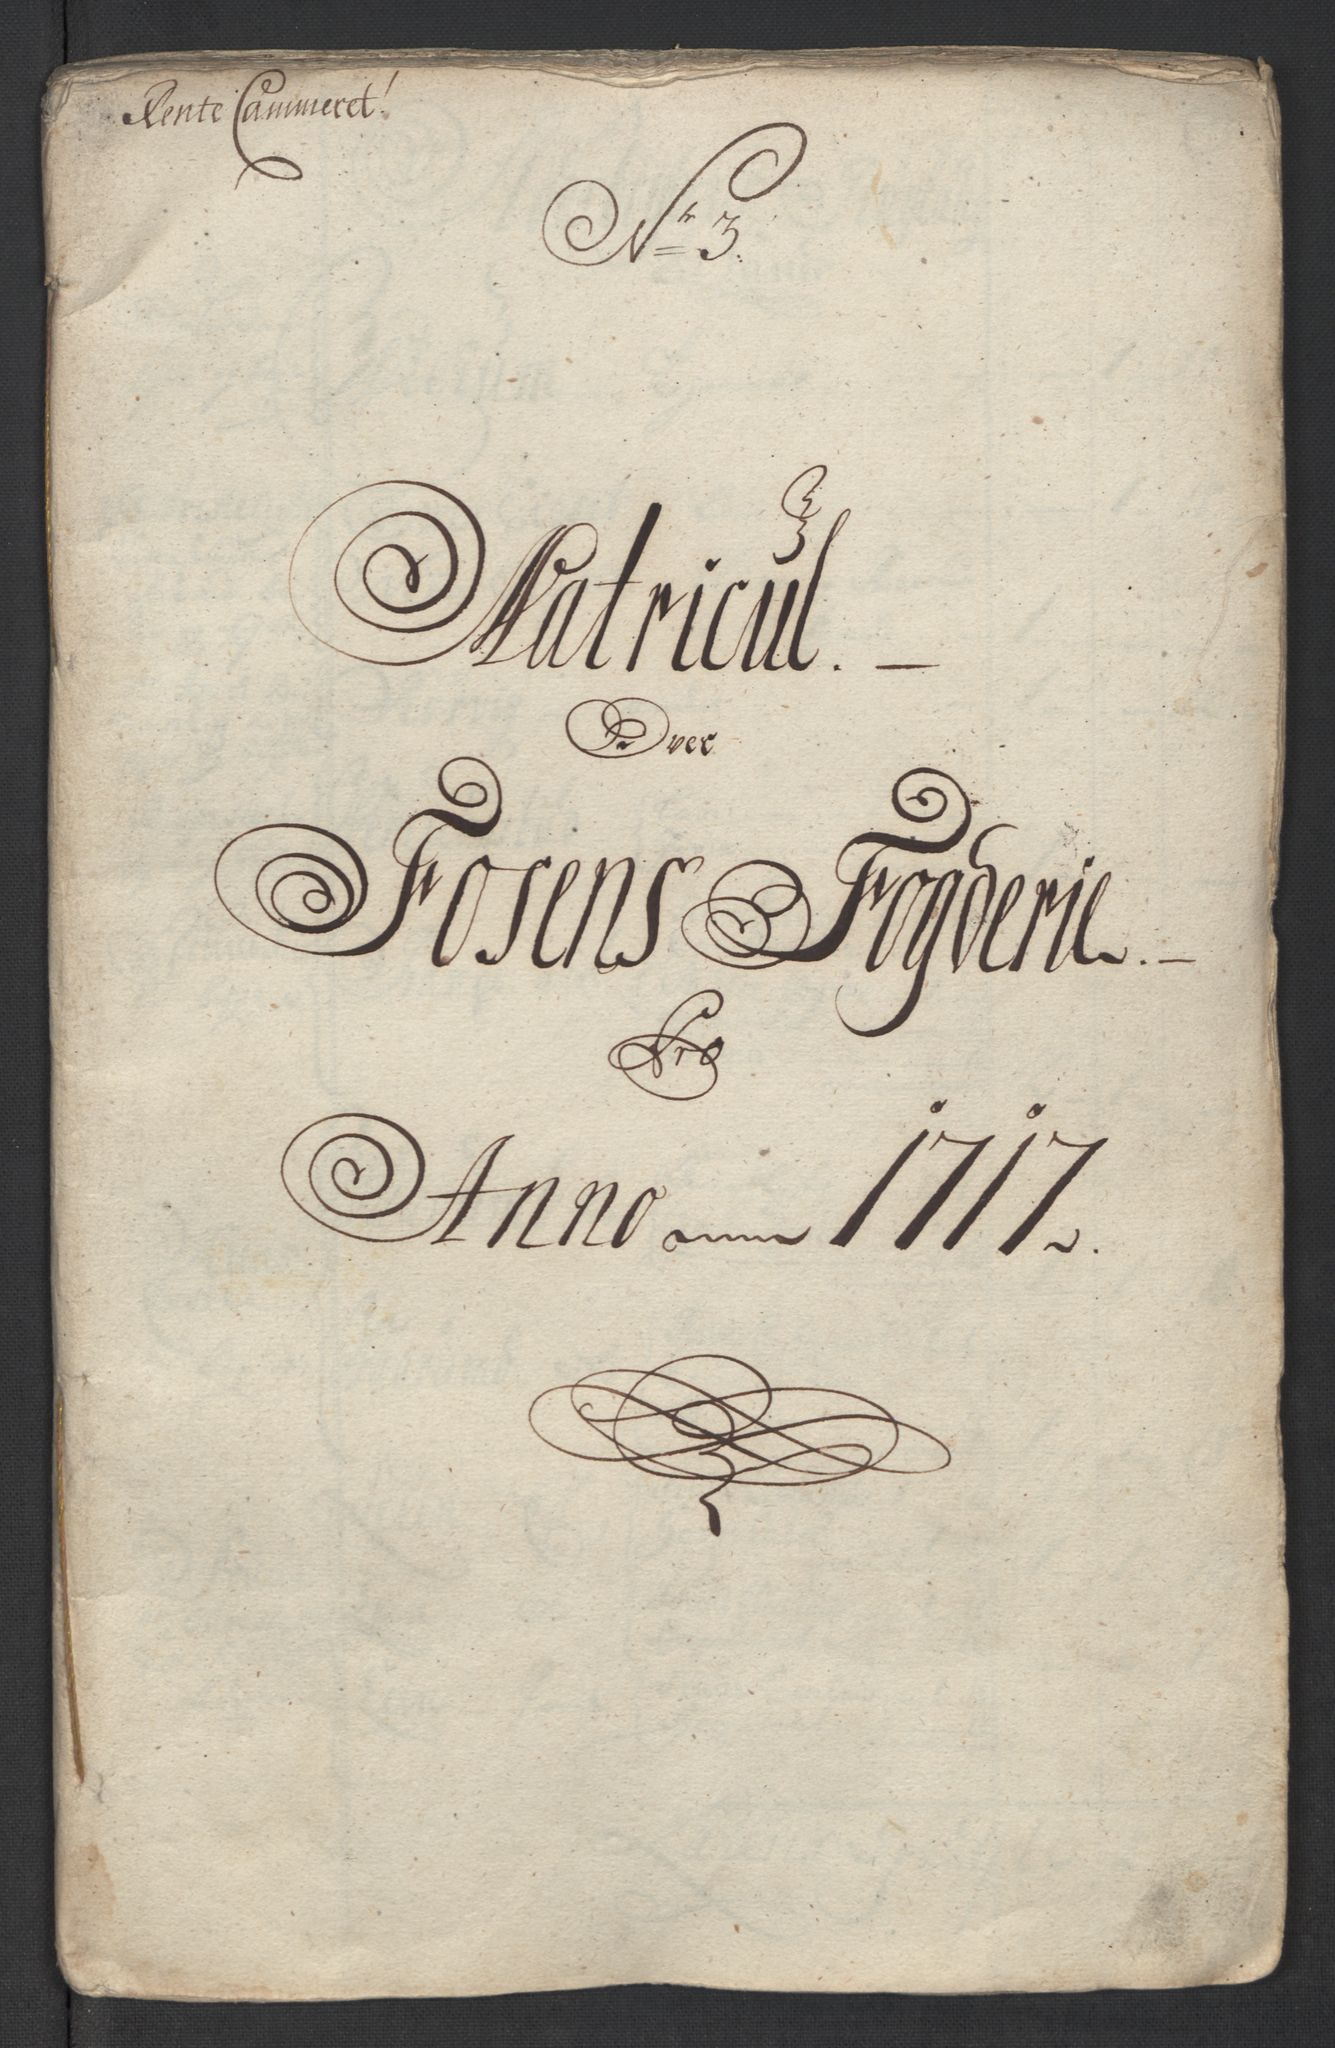 Rente Cammeret!
Nr 3.
Matricul. —
Over
Fosens Fogderie. —
Pro
Anno 1717.